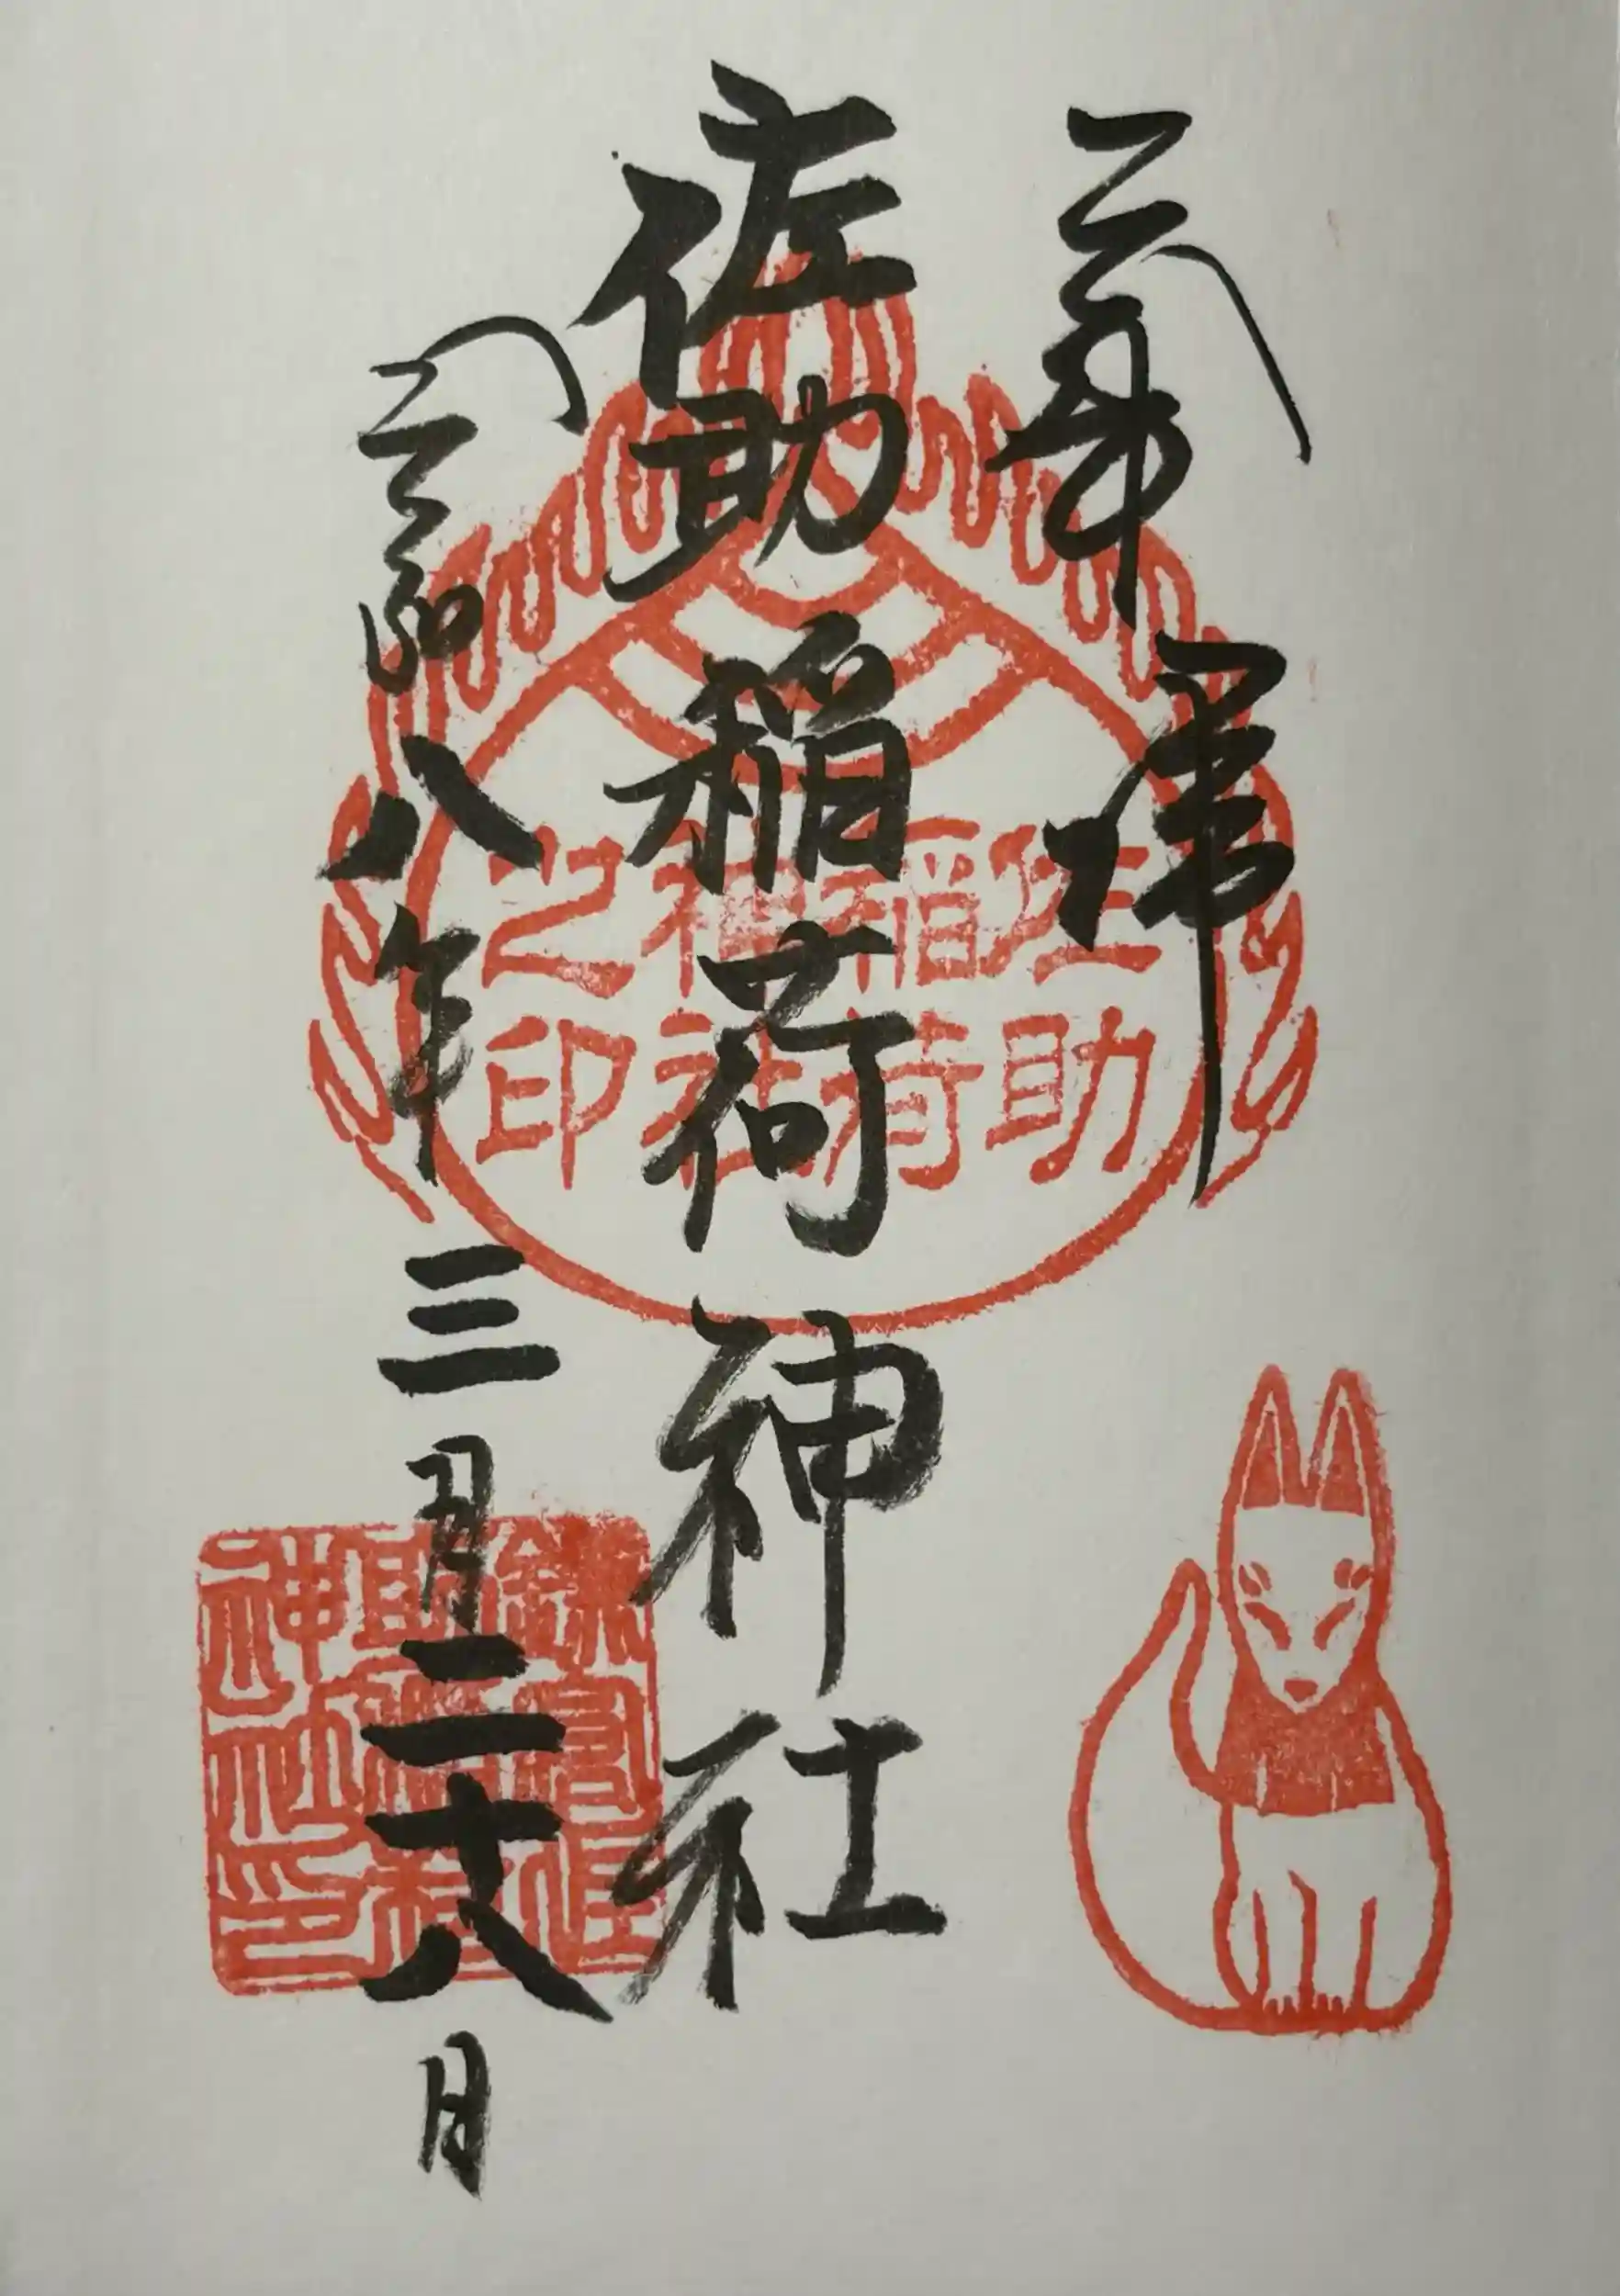 奉拝
佐助稲荷神社
令和八年三月二十八日
佐助
稲荷
神社
之印
鎌倉佐
助稲荷
神社印